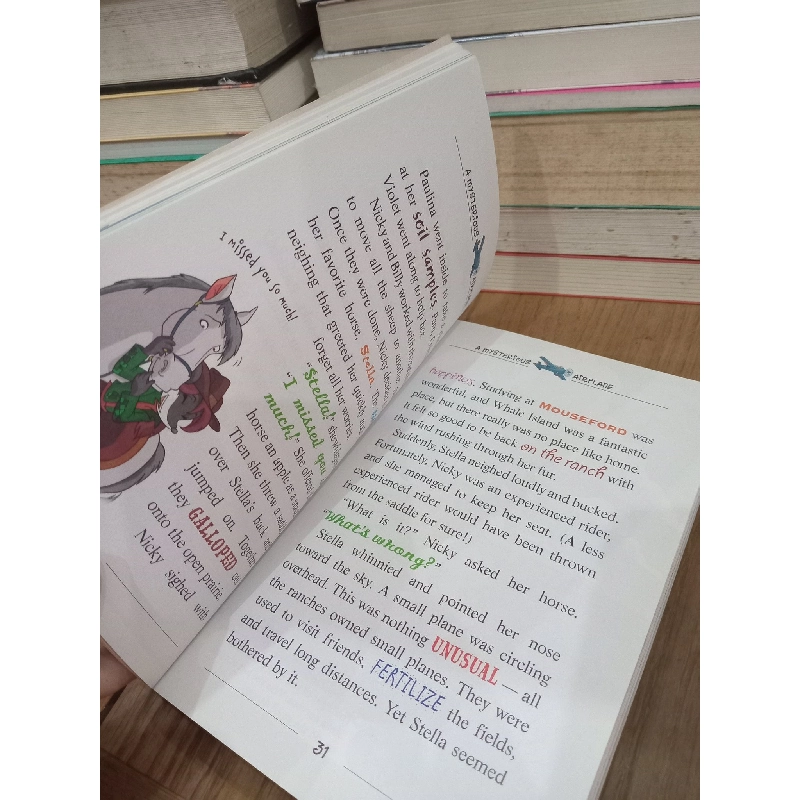 A MYSTERIOUS
Paulina went inside to take a
at her soil samples.
Violet went along to help her.
Nicky and Billy worked with the
to move all the sheep to another
Once they were done, Nicky
her favorite horse, Stella. The
neighing that greeted her quickly
forget all her worries.
"Stella!"
"I missed you
much!" She offered
horse an apple as a
Then she threw a
over Stella's back and
jumped on. Together
they GALLOPED
onto the open prairie.
Nicky sighed with
I missed you so much!
A MYSTERIOUS AIRPLANE
happiness. Studying at MOUSEFORD was
wonderful, and Whale Island was a fantastic
place, but there really was no place like home.
It felt so good to be back on the ranch with
the wind rushing through her fur.
Suddenly, Stella neighed loudly and bucked.
Fortunately, Nicky was an experienced rider,
and she managed to keep her seat. (A less
experienced rider would have been thrown
from the saddle for sure!)
"What is it?" Nicky asked her horse.
"What's whong?"
Stella whinnied and pointed her nose
toward the sky. A small plane was circling
overhead. This was nothing UNUSUAL — all
the ranches owned small planes. They were
used to visit friends, FERTILIZE the fields,
and travel long distances. Yet Stella seemed
bothered by it.
31